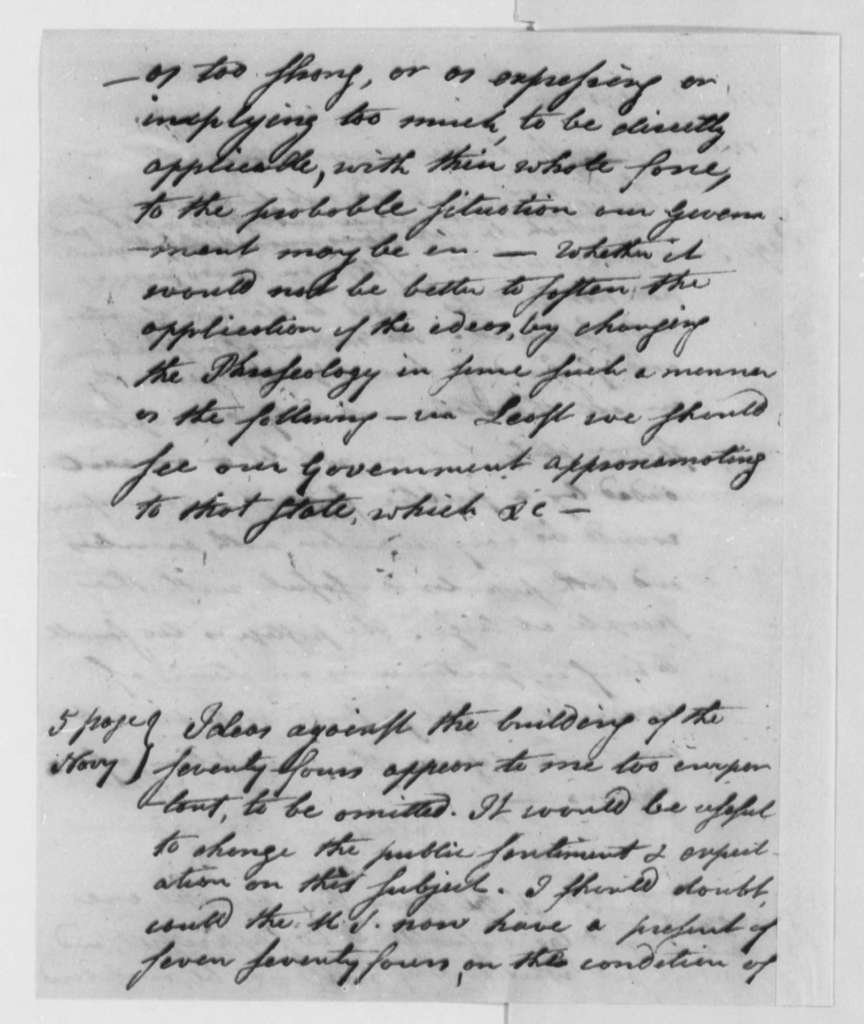 — as too strong, or as expressing or
implying too much, to be directly
applicable, with their whole force,
to the probable situation our Govern
-ment may be in — Whether it
would not be better to soften the
application of the ideas, by changing
the Phraseology in some such a manner
as the following — viz Least we should
see our Government approximating
to that State, which &c —
5 page
Navy
Ideas against the building of the
seventy fours appear to me too impor
-tant, to be omitted. It would be useful
to change the public sentiment & expect-
ation on this subject. I should doubt,
could the U. S. now have a present of
seven seventy fours, on the condition of